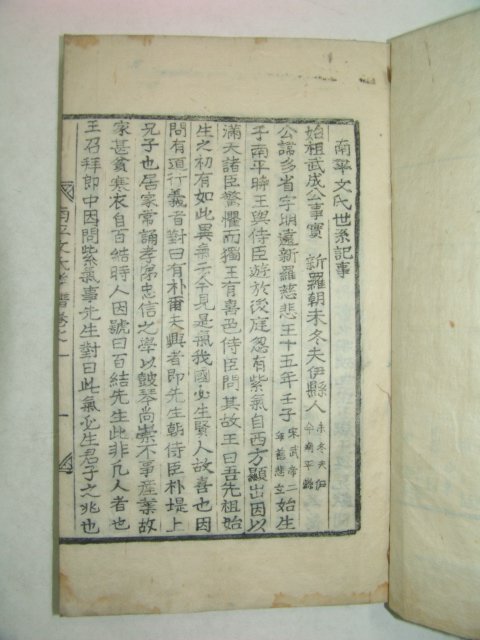 南平文氏世系記事
始祖武成公事實 新羅朝未冬夫伊縣人 未冬夫伊 今南平縣
公諱多省字明遠新羅慈悲王十五年壬子 始生
于南平時王與侍臣遊放後庭忽有紫氣自西方顯出因以
滿天諸臣驚懼而獨王有喜色侍臣問其故王曰吾先祖始
生之初有如此異氣云今見是氣我國必生賢人故喜也因
問有道行義者對曰有朴爾夫興者即先生朝侍臣朴堤上
兄子也居家常誦孝悌忠信之學以鼓琴尚崇不事産業故
家甚貧寒衣自百結時人因號曰百結先生此非凡人者也
王召拜郎中因問紫氣事先生對曰此氣必生君子之兆也
南平文氏